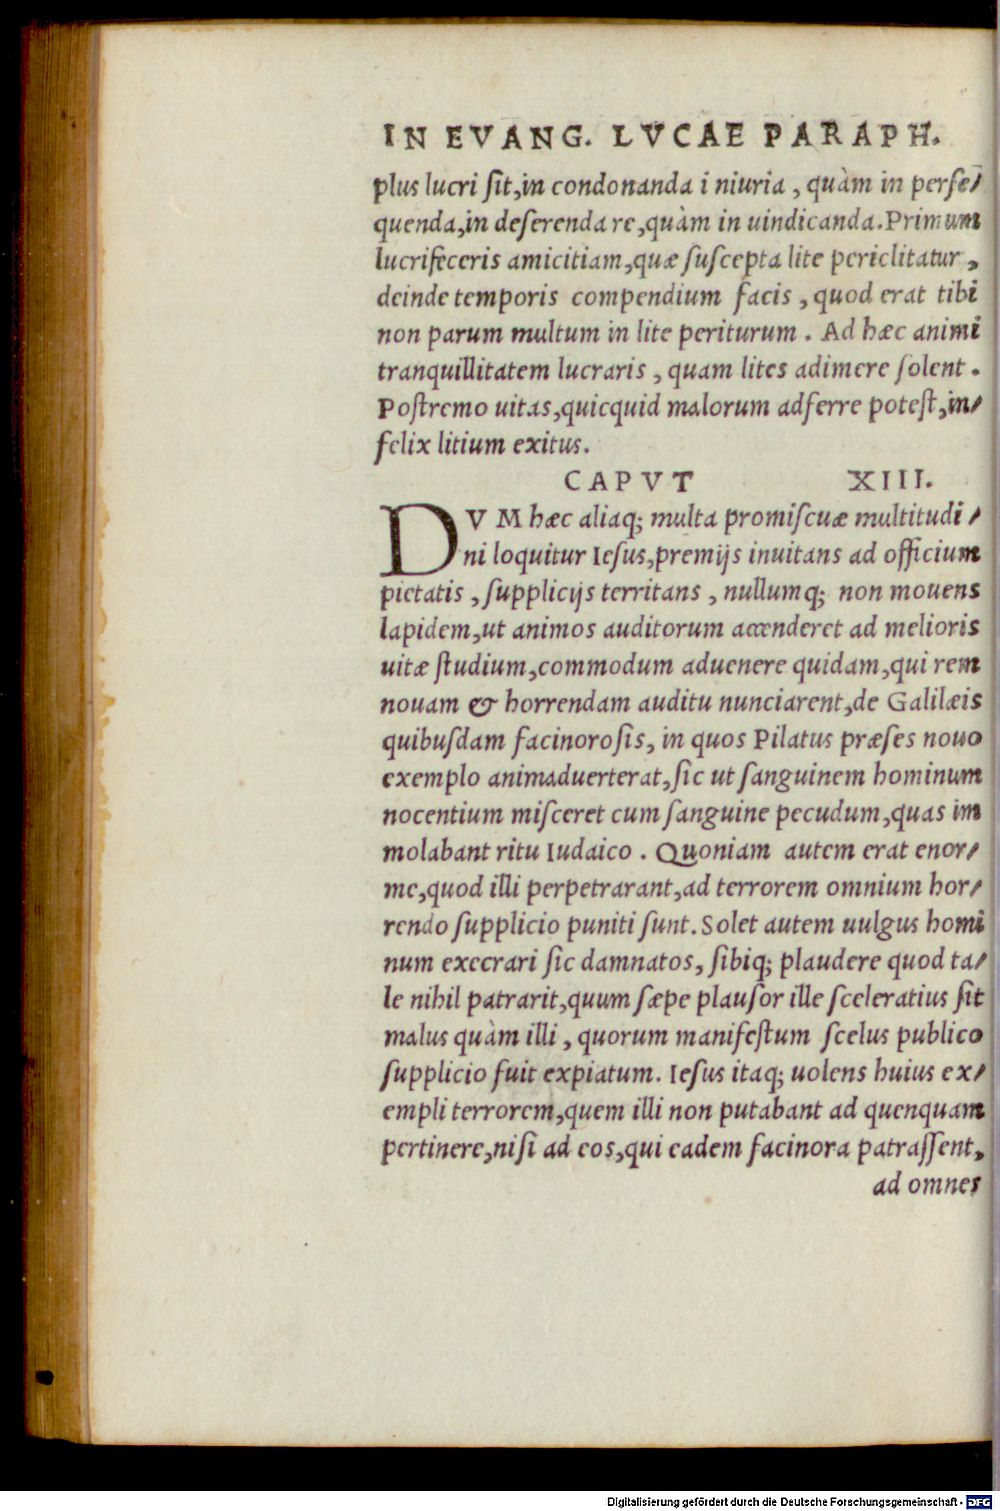 IN EVANG. LVCAE PARAPH.
plus lucri ſit,in condonanda i niuria , quàm in perſe/
quenda,in deſerenda re,quàm in uindicanda.Primum
lucrifeceris amicitiam,quæ ſuſcepta lite periclitatur ,
deinde temporis compendium facis , quod erat tibi
non parum multum in lite periturum . Ad hæc animi
tranquillitatem lucraris , quam lites adimere ſolent .
Poſtremo uitas,quicquid malorum adferre poteſt,in/
felix litium exitus.
CAPVT XIII.
DVM hæc aliaq; multa promiſcuæ multitudi /
ni loquitur Ieſus,premijs inuitans ad officium
pietatis , ſupplicijs territans , nullumq; non mouens
lapidem,ut animos auditorum accenderet ad melioris
uitæ ſtudium,commodum aduenere quidam,qui rem
nouam & horrendam auditu nunciarent,de Galilæis
quibuſdam facinoroſis, in quos Pilatus præſes nouo
exemplo animaduerterat,ſic ut ſanguinem hominum
nocentium miſceret cum ſanguine pecudum,quas im
molabant ritu Iudaico . Quoniam autem erat enor/
me,quod illi perpetrarant,ad terrorem omnium hor/
rendo ſupplicio puniti ſunt. Solet autem uulgus homi
num execrari ſic damnatos, ſibiq; plaudere quod ta/
le nihil patrarit,quum ſæpe plauſor ille ſceleratius ſit
malus quàm illi , quorum manifeſtum ſcelus publico
ſupplicio fuit expiatum. Ieſus itaq; uolens huius ex/
empli terrorem,quem illi non putabant ad quenquam
pertinere,niſi ad eos,qui eadem facinora patraſſent,
ad omnes
Digitalisierung gefördert durch die Deutsche Forschungsgemeinschaft - DFG